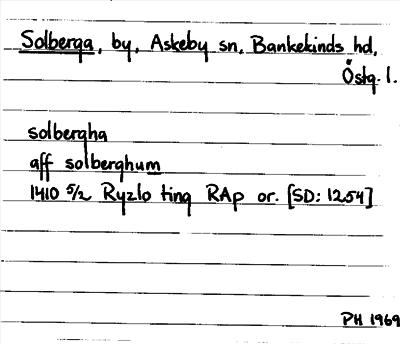 Solberga, by, Askeby sn, Bankekinds hd,
Östg. l.
solbergha
aff solberghum
1410 5/2 Ryzlo ting RAp or. [SD: 1254]
PH 1969